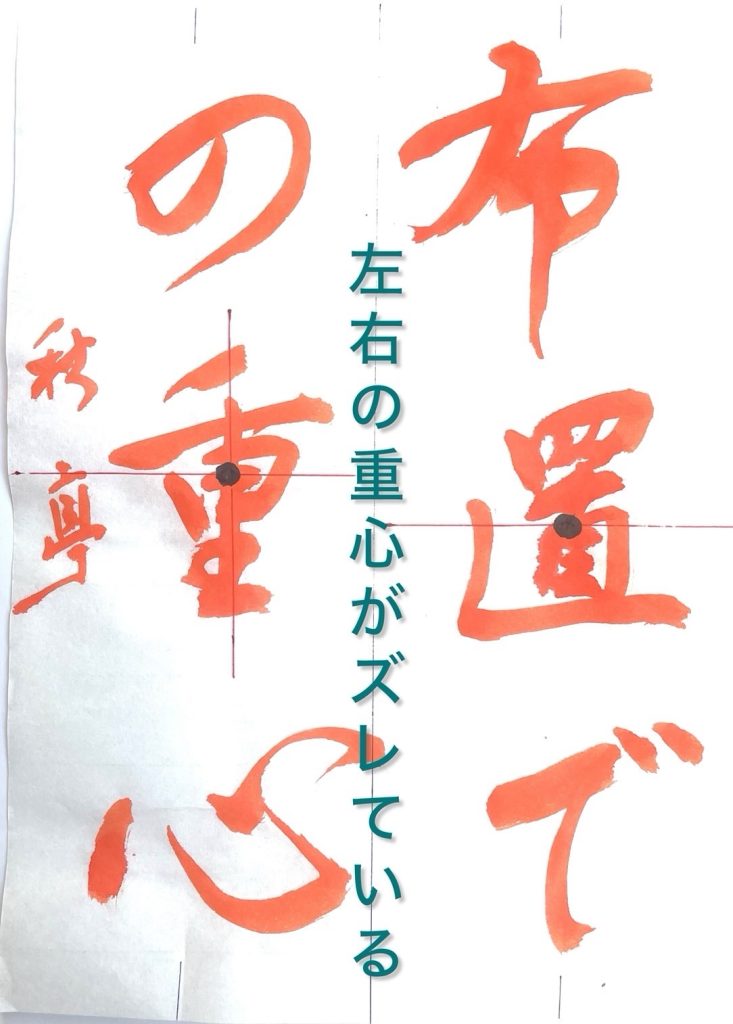 布置で
左右の重心がズレている
の重心
秋亭